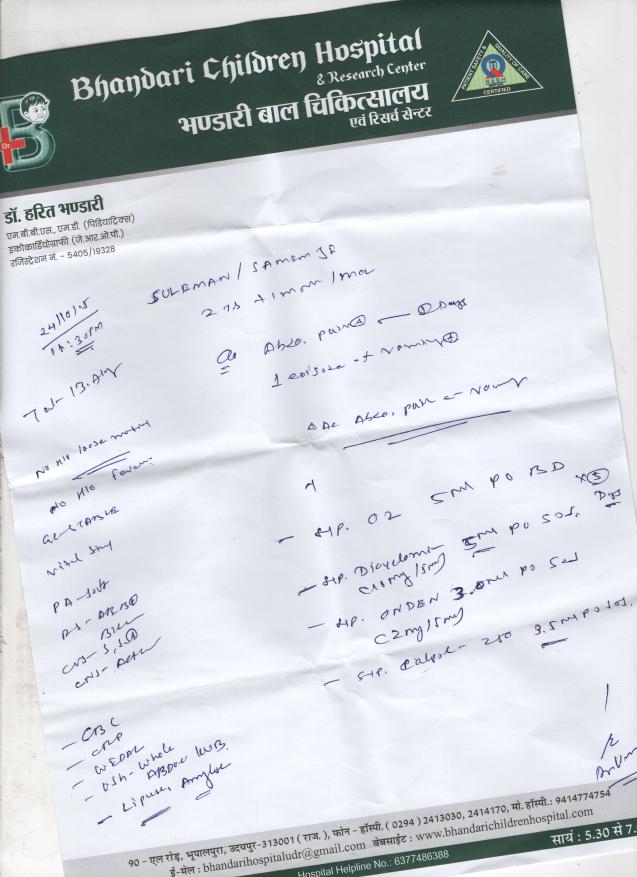 Bhandari Children Hospital
& Research Center
भण्डारी बाल चिकित्सालय
एवं रिसर्च सेन्टर
PATIENT SAFETY & QUALITY OF CARE
CERTIFIED
Dr.
डॉ. हरित भण्डारी
एम.बी.बी.एस., एम.डी. (पिडियाट्रिक्स)
इकोकार्डियोग्राफी (जे.आर.ओ.पी.)
रजिस्ट्रेशन नं. - 5405/19328
SULEMAN / SAMEM
24/10/25
:30PM
Abdo. pain
Days
1 episode of vomiting
No H/o loose
No H/o fever
Abdo. pain
GC-STABLE
Vital
PA-Soft
- syp. O2 5ml PO BD x 5 Days
- syp. Dicyclomin 5ml PO SOS
(10mg/5ml)
- syp. ONDEN 3.0ml PO SOS
(2mg/5ml)
- syp. Calpol-250 3.5ml PO SOS
- CBC
- CRP
- WIDAL
- USG-Whole
ABDO KUB
- Lipase, Amylase
90 - एल रोड़, भूपालपुरा, उदयपुर-313001 ( राज. ), फोन - हॉस्पी. ( 0294 ) 2413030, 2414170, मो. हॉस्पी.: 9414774754
ई-मेल : bhandarihospitaludr@gmail.com वेबसाईट : www.bhandarichildrenhospital.com
Hospital Helpline No.: 6377486388
सायं : 5.30 से 7.